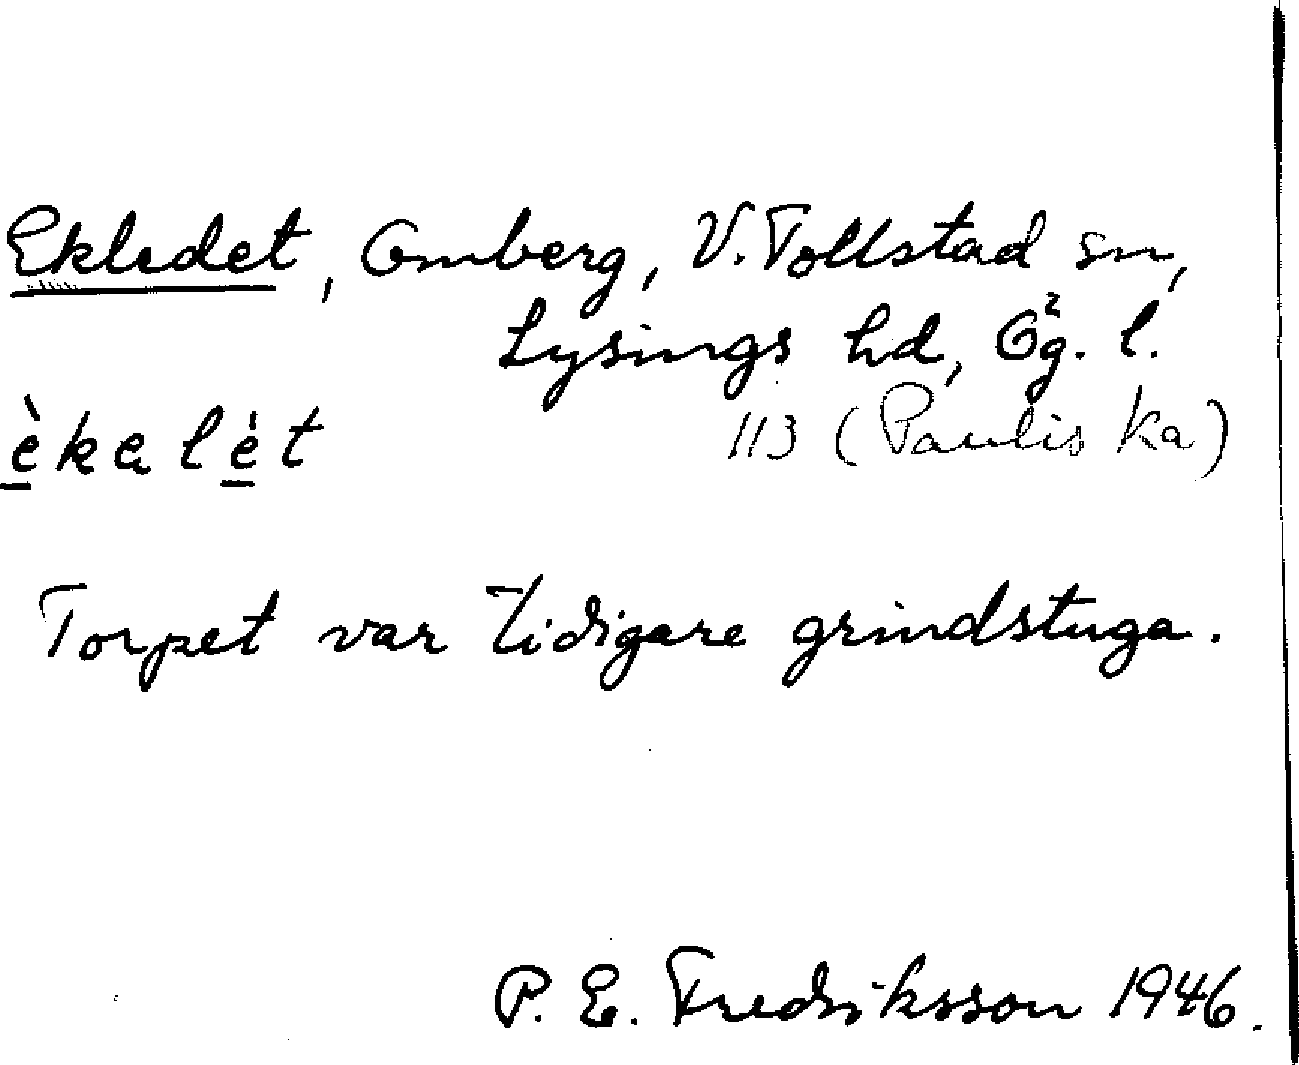 Ekledet, Omberg, V. Tollstad sn,
Lysings hd, Ög. l.
èkalèt 113 (Paulis ka)
Torpet var tidigare grindstuga.
P. E. Fredriksson 1946.